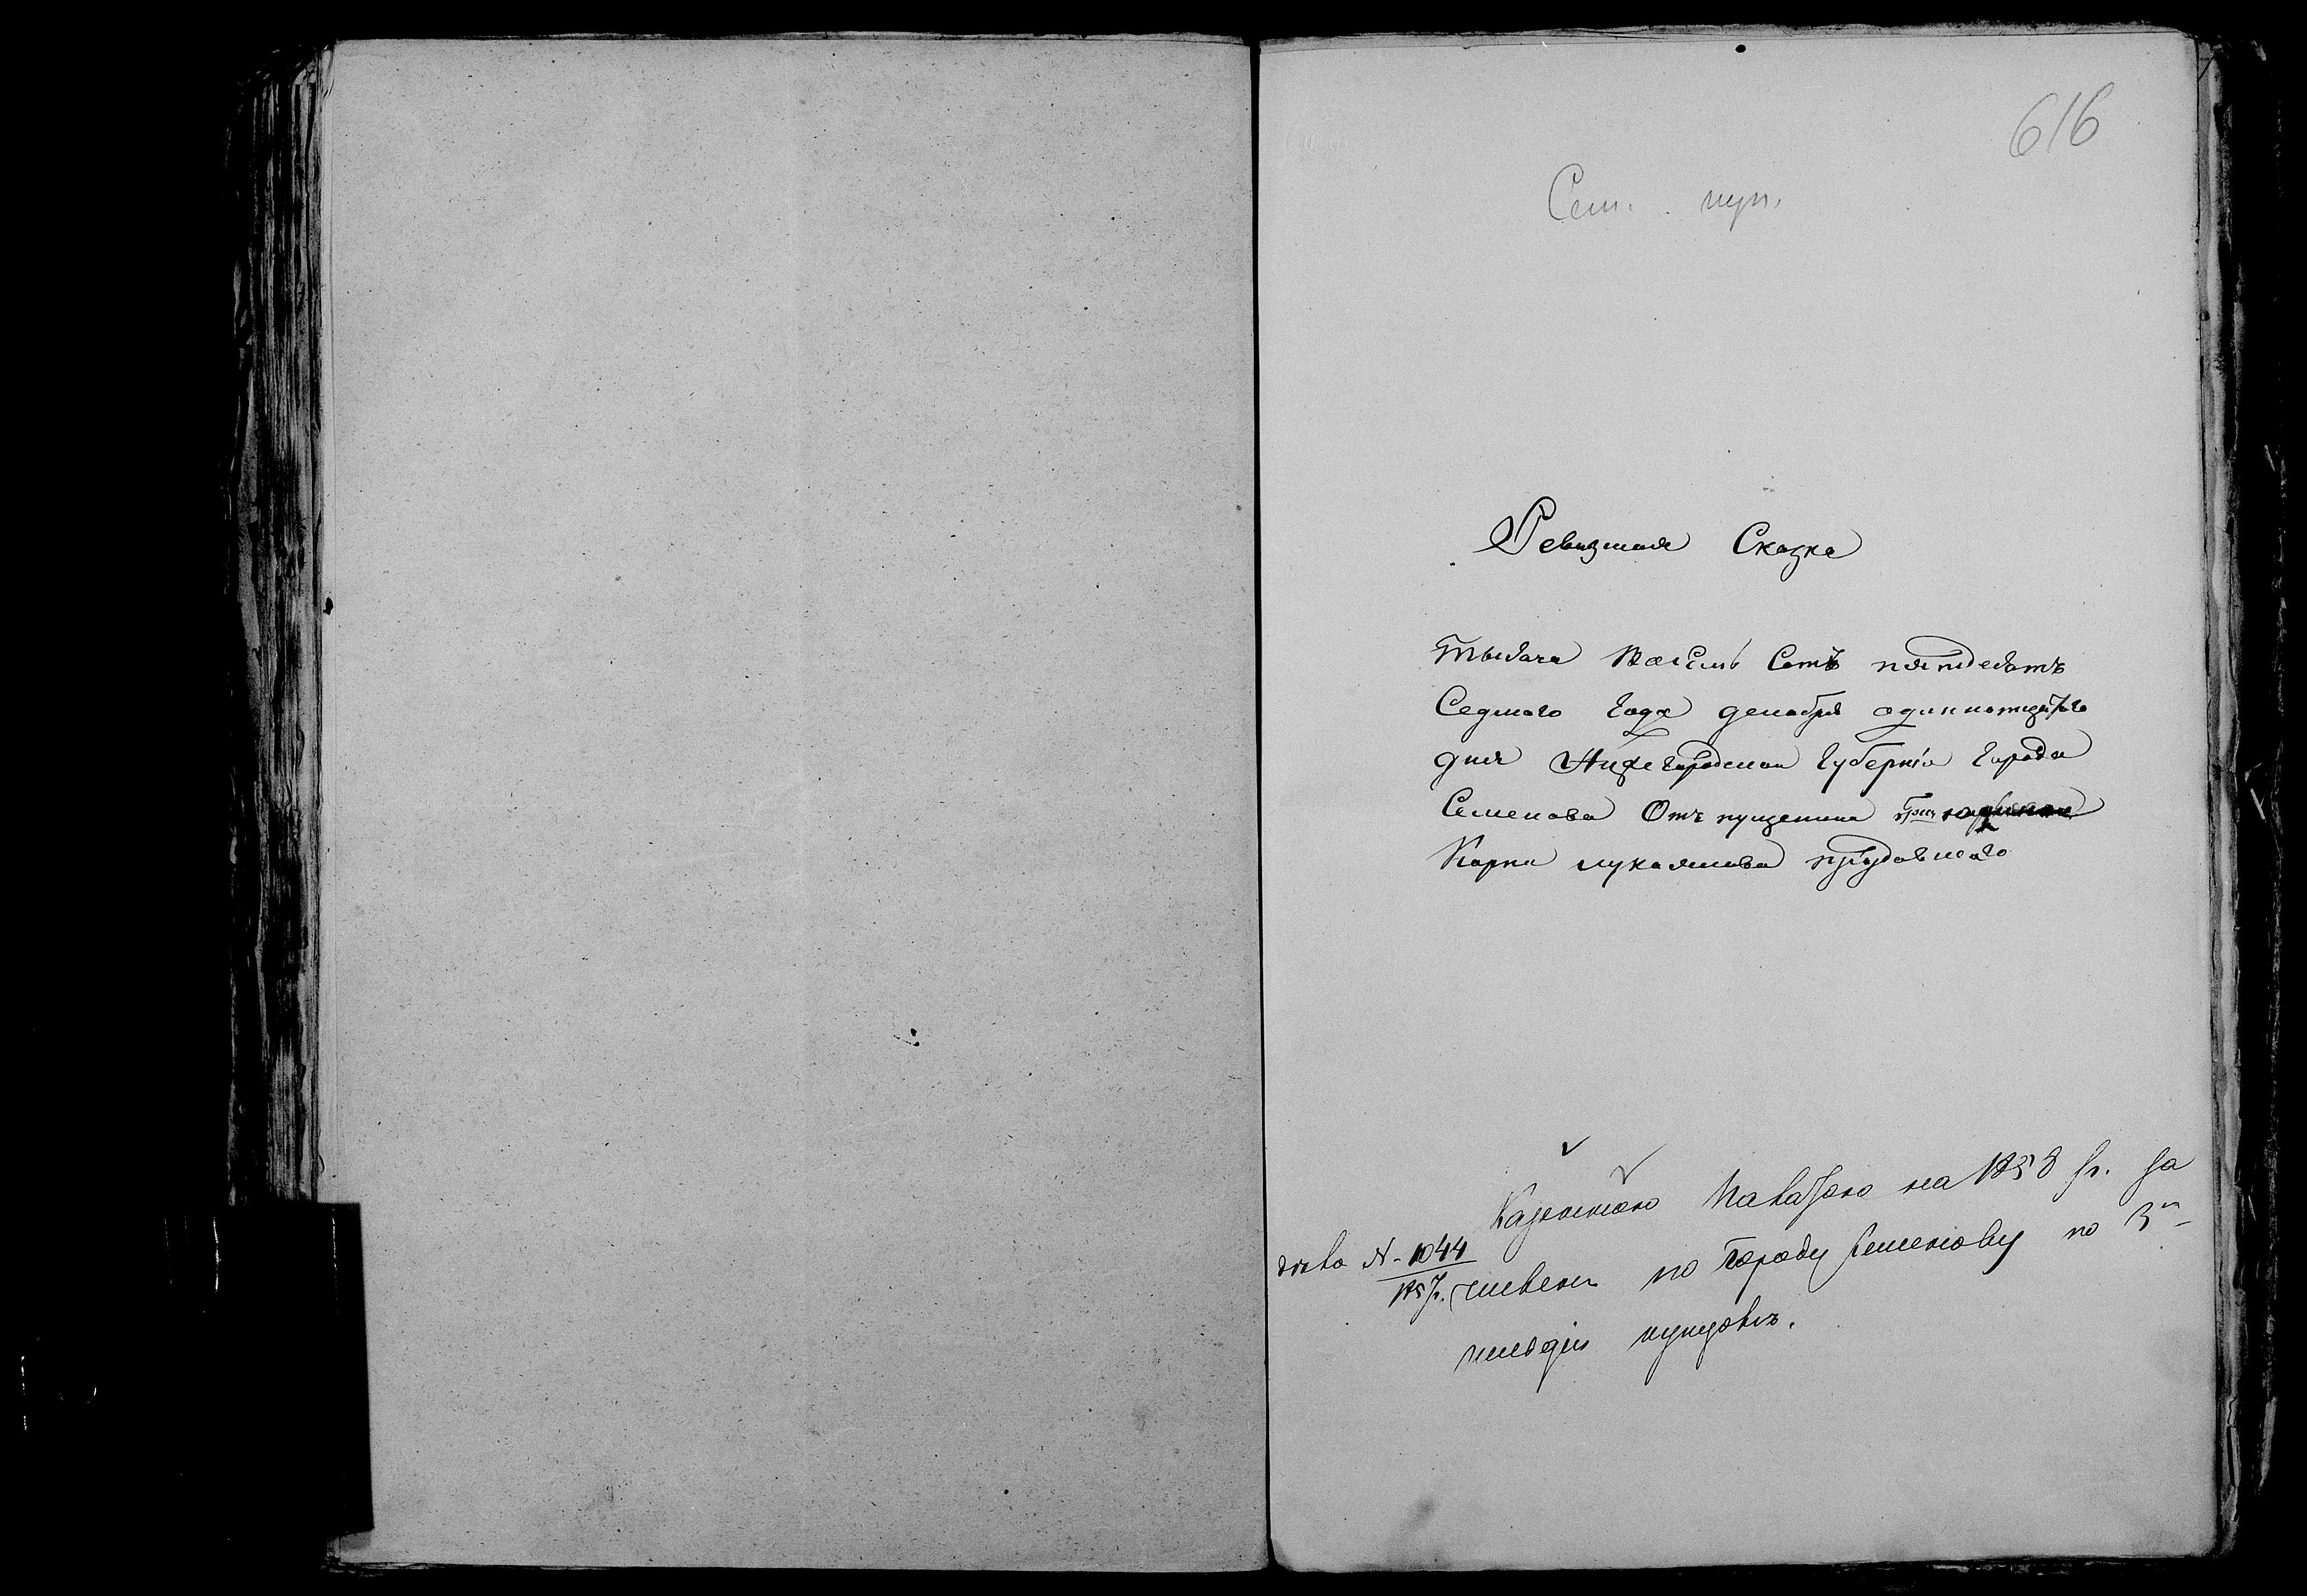 616
Сем. куп.
Ревизкая Сказка
Тысеча Восемь Сотъ пятдесятъ
Седмаго года декабря одиннатцатаго
дня Нижегородской Губерніи Города
Семенова Отъ купецкаго
Карпа лукоянова
Казенною Палатою на 1858 г. за
дѣло № 1044
1857. численъ по городу Семенову по 3й
гильдіи купцовъ.